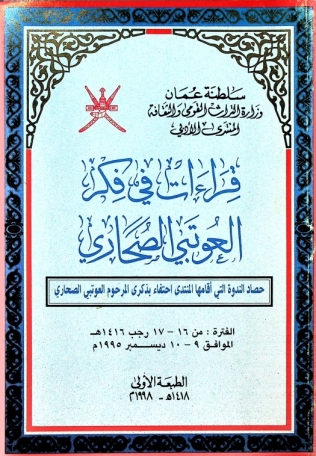 سلطنة عمان
وزارة التراث القومي والثقافة
المنتدى الأدبي
قراءات في فكر
العوتبي الصحاري
حصاد الندوة التي أقامها المنتدى احتفاء بذكرى المرحوم العوتبي الصحاري
الفترة : من ١٦ - ١٧ رجب ١٤١٦هـ
الموافق ٩ - ١٠ ديسمبر ١٩٩٥م
الطبعة الأولى
١٤١٨هـ - ١٩٩٨م